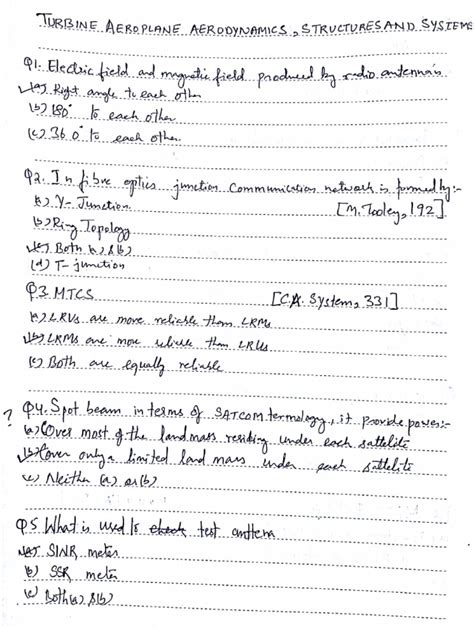 TURBINE AEROPLANE AERODYNAMICS, STRUCTURES AND SYSTEMS
Q1. Electric field and magnetic field produced by radio antenna's
(a) Right angle to each other
(b) 180° to each other
(c) 360° to each other
Q2. In fibre optics junction communication network is formed by:-
a) Y-Junction [M.Tooley, 192]
b) Ring Topology
(c) Both a) & b)
(d) T-junction
Q3 MTCS [CA System, 331]
a) LRUs are more reliable than LRMs
(b) LRMs are more reliable than LRUs
(c) Both are equally reliable
? Q4. Spot beam in terms of SATCOM termology, it provide power:-
(a) Cover most of the landmass residing under each sattelite
(b) Cover only a limited land mass under each sattelite
(c) Neither (a) or (b)
Q5 What is used to check test antena
(a) SWR meter
(b) SSR meter
(c) Both (a) & (b)